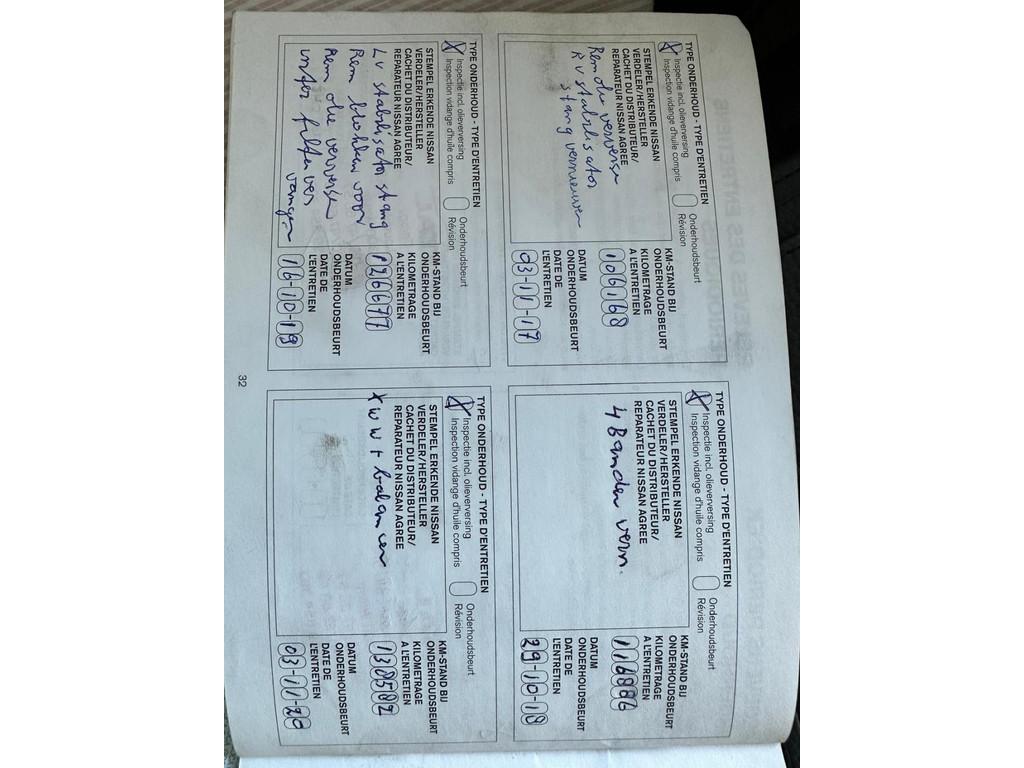 TYPE ONDERHOUD - TYPE D'ENTRETIEN
X Inspectie incl. olieverversing
Inspection vidange d'huile compris
Onderhoudsbeurt
Révision
STEMPEL ERKENDE NISSAN
VERDELER/HERSTELLER
CACHET DU DISTRIBUTEUR/
REPARATEUR NISSAN AGREE
Rem olie verversen
RV stabilisator
stang vernieuwen
KM-STAND BIJ
ONDERHOUDSBEURT
KILOMETRAGE
A L'ENTRETIEN
106168
DATUM
ONDERHOUDSBEURT
DATE DE
L'ENTRETIEN
03-11-17
TYPE ONDERHOUD - TYPE D'ENTRETIEN
X Inspectie incl. olieverversing
Inspection vidange d'huile compris
Onderhoudsbeurt
Révision
STEMPEL ERKENDE NISSAN
VERDELER/HERSTELLER
CACHET DU DISTRIBUTEUR/
REPARATEUR NISSAN AGREE
4 Banden vern.
KM-STAND BIJ
ONDERHOUDSBEURT
KILOMETRAGE
A L'ENTRETIEN
116886
DATUM
ONDERHOUDSBEURT
DATE DE
L'ENTRETIEN
29-10-18
TYPE ONDERHOUD - TYPE D'ENTRETIEN
X Inspectie incl. olieverversing
Inspection vidange d'huile compris
Onderhoudsbeurt
Révision
STEMPEL ERKENDE NISSAN
VERDELER/HERSTELLER
CACHET DU DISTRIBUTEUR/
REPARATEUR NISSAN AGREE
LV stabilisator stang
Rem blokken voor
Rem olie verversen
filter ver
vangen
KM-STAND BIJ
ONDERHOUDSBEURT
KILOMETRAGE
A L'ENTRETIEN
126677
DATUM
ONDERHOUDSBEURT
DATE DE
L'ENTRETIEN
16-10-19
TYPE ONDERHOUD - TYPE D'ENTRETIEN
X Inspectie incl. olieverversing
Inspection vidange d'huile compris
Onderhoudsbeurt
Révision
STEMPEL ERKENDE NISSAN
VERDELER/HERSTELLER
CACHET DU DISTRIBUTEUR/
REPARATEUR NISSAN AGREE
x WW + balancer
KM-STAND BIJ
ONDERHOUDSBEURT
KILOMETRAGE
A L'ENTRETIEN
138582
DATUM
ONDERHOUDSBEURT
DATE DE
L'ENTRETIEN
03-11-20
32